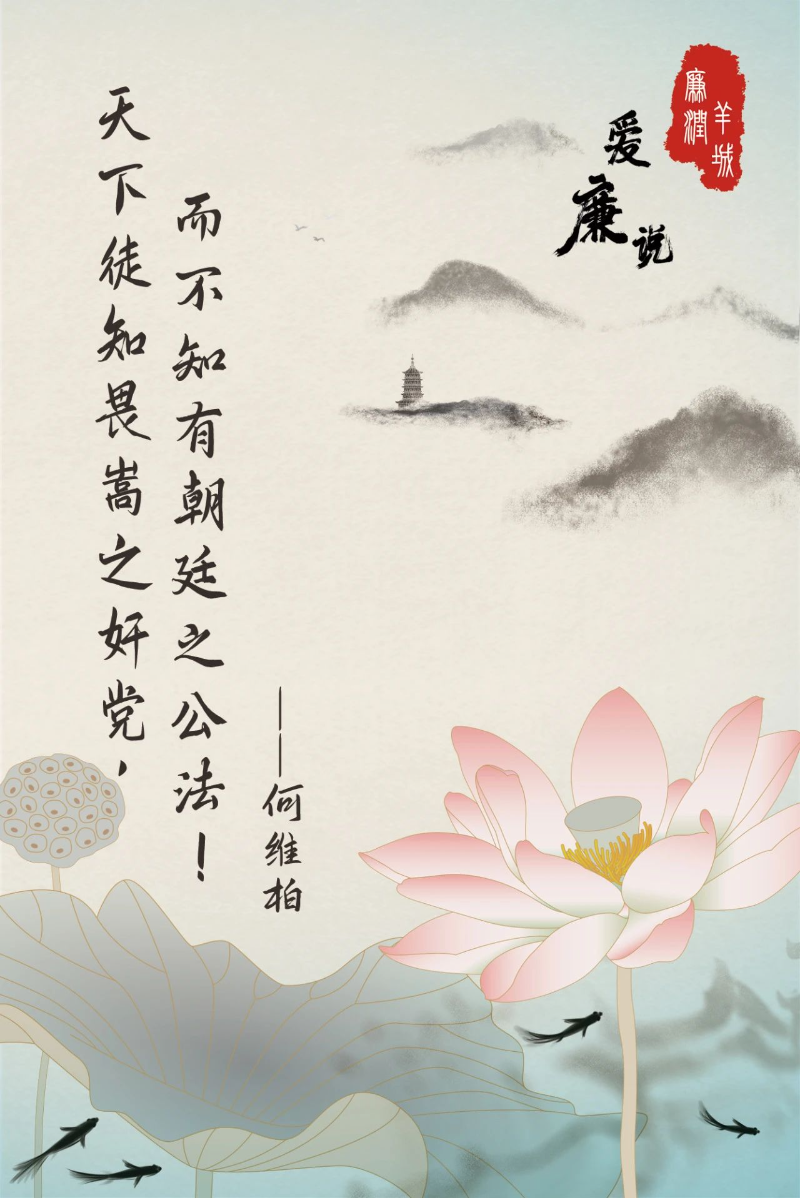 天下徒知畏嵩之奸党，
而不知有朝廷之公法！
——何维柏
爱廉说
廉潤
羊城